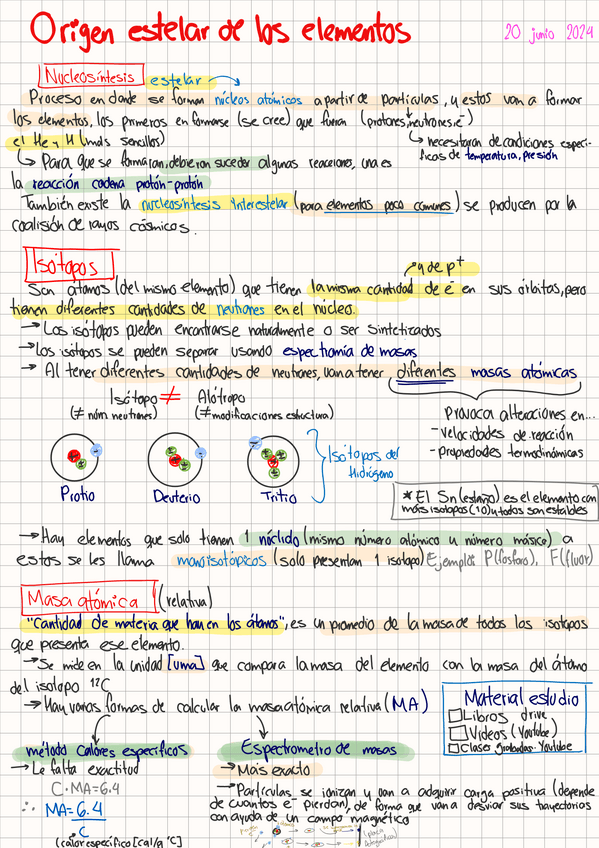 Origen estelar de los elementos
20 junio 2024
Nucleosíntesis estelar
Proceso en donde se forman núcleos atómicos a partir de partículas, y estos van a formar
los elementos, los primeros en formarse (se cree) que fueron (protones, neutrones, e⁻)
el He y H (más sencillos)
↳ necesitaron de condiciones especí-
ficas de temperatura, presión
↳ Para que se formaran, debieron suceder algunas reacciones, una es
la reacción cadena protón-protón
También existe la nucleosíntesis interestelar (para elementos poco comunes) se producen por la
coalisión de rayos cósmicos.
Isótopos
y de p⁺
Son átomos (del mismo elemento) que tienen la misma cantidad de e⁻ en sus órbitas, pero
tienen diferentes cantidades de neutrones en el núcleo.
→ Los isótopos pueden encontrarse naturalmente o ser sintetizados
→ los isótopos se pueden separar usando espectromía de masas
→ Al tener diferentes cantidades de neutrones, van a tener diferentes masas atómicas
Isótopo ≠ Alótropo
(≠ núm neutrones) (≠ modificaciones estructura)
Provoca alteraciones en...
- velocidades de reacción
- propiedades termodinámicas
Isótopos del
Hidrógeno
Protio Deuterio Tritio
* El Sn (estaño) es el elemento con
más isotopos (10) y todos son estables
→ Hay elementos que solo tienen 1 núclido (mismo número atómico y número másico) a
estos se les llama monoisotópicos (solo presentan 1 isotopo) Ejemplos P(fosforo), F(fluor)
Masa atómica (relativa)
"Cantidad de materia que hay en los átomos", es un promedio de la masa de todos los isotopos
que presenta ese elemento.
→ Se mide en la unidad [uma] que compara la masa del elemento con la masa del átomo
del isotopo ¹²C
→ Hay varias formas de calcular la masa atómica relativa (MA)
Material estudio
□ Libros drive
□ Videos (Youtube)
□ Clases grabadas Youtube
método Calores específicos
→ Le falta exactitud
C · MA = 6.4
∴ MA = 6.4
C
(calor específico [cal/g °C]
Espectrometro de masas
→ Mais exacto
→ Partículas se ionizan y van a adquirir carga positiva (depende
de cuantos e⁻ pierdan), de forma que van a desviar sus trayectorias
con ayuda de un campo magnético